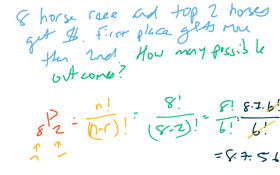 8 horse race and top 2 horses
get $. First place gets more
then 2nd. How many possible
outcomes?
₈P₂ = n!/(n-r)! = 8!/(8-2)! = 8!/6! = 8·7·6!/6!
n r
= 8·7 = 56